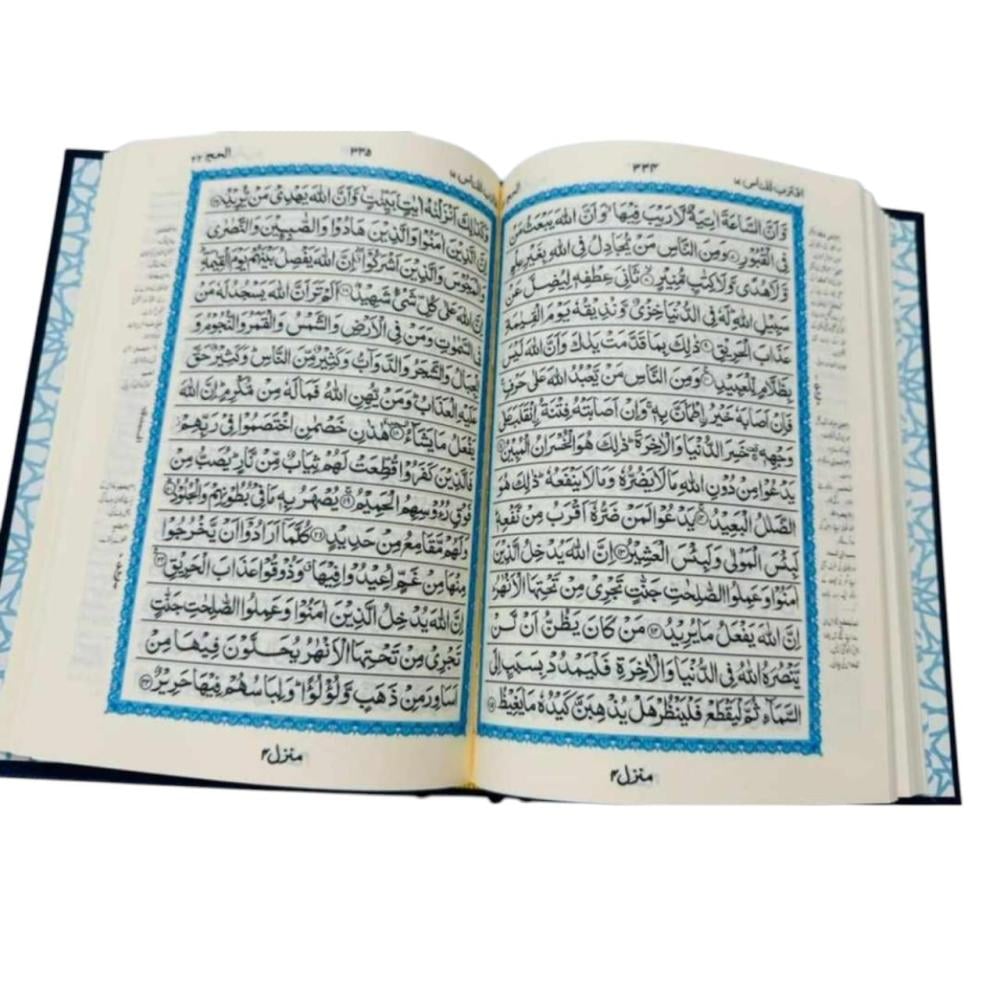 اقترب للناس ۱۷
۳۳۴
وَّاَنَّ السَّاعَةَ اٰتِيَةٌ لَّا رَيْبَ فِيْهَا ۙ وَاَنَّ اللّٰهَ يَبْعَثُ مَنْ
فِي الْقُبُوْرِ ۷ وَمِنَ النَّاسِ مَنْ يُّجَادِلُ فِي اللّٰهِ بِغَيْرِ عِلْمٍ
وَّلَا هُدًى وَّلَا كِتٰبٍ مُّنِيْرٍ ۸ ثَانِيَ عِطْفِهٖ لِيُضِلَّ عَنْ
سَبِيْلِ اللّٰهِ ؕ لَهٗ فِي الدُّنْيَا خِزْيٌ وَّنُذِيْقُهٗ يَوْمَ الْقِيٰمَةِ
عَذَابَ الْحَرِيْقِ ۹ ذٰلِكَ بِمَا قَدَّمَتْ يَدٰكَ وَاَنَّ اللّٰهَ لَيْسَ
بِظَلَّامٍ لِّلْعَبِيْدِ ۱۰ وَمِنَ النَّاسِ مَنْ يَّعْبُدُ اللّٰهَ عَلٰى حَرْفٍ ۚ
فَاِنْ اَصَابَهٗ خَيْرُ ِۨاطْمَاَنَّ بِهٖ ۚ وَاِنْ اَصَابَتْهُ فِتْنَةُ ِۨانْقَلَبَ عَلٰى
وَجْهِهٖ ۚ خَسِرَ الدُّنْيَا وَالْاٰخِرَةَ ؕ ذٰلِكَ هُوَ الْخُسْرَانُ الْمُبِيْنُ ۱۱
يَدْعُوْا مِنْ دُوْنِ اللّٰهِ مَا لَا يَضُرُّهٗ وَمَا لَا يَنْفَعُهٗ ؕ ذٰلِكَ هُوَ
الضَّلٰلُ الْبَعِيْدُ ۱۲ يَدْعُوْا لَمَنْ ضَرُّهٗۤ اَقْرَبُ مِنْ نَّفْعِهٖ ؕ
لَبِئْسَ الْمَوْلٰى وَلَبِئْسَ الْعَشِيْرُ ۱۳ اِنَّ اللّٰهَ يُدْخِلُ الَّذِيْنَ
اٰمَنُوْا وَعَمِلُوا الصّٰلِحٰتِ جَنّٰتٍ تَجْرِيْ مِنْ تَحْتِهَا الْاَنْهٰرُ ؕ
اِنَّ اللّٰهَ يَفْعَلُ مَا يُرِيْدُ ۱۴ مَنْ كَانَ يَظُنُّ اَنْ لَّنْ
يَّنْصُرَهُ اللّٰهُ فِي الدُّنْيَا وَالْاٰخِرَةِ فَلْيَمْدُدْ بِسَبَبٍ اِلَى
السَّمَآءِ ثُمَّ لْيَقْطَعْ فَلْيَنْظُرْ هَلْ يُذْهِبَنَّ كَيْدُهٗ مَا يَغِيْظُ ۱۵
منزل ۴
۳۳۵
الحج ۲۲
وَكَذٰلِكَ اَنْزَلْنٰهُ اٰيٰتٍۭ بَيِّنٰتٍ ۙ وَّاَنَّ اللّٰهَ يَهْدِيْ مَنْ يُّرِيْدُ ۱۶
اِنَّ الَّذِيْنَ اٰمَنُوْا وَالَّذِيْنَ هَادُوْا وَالصّٰبِـِٕيْنَ وَالنَّصٰرٰى
وَالْمَجُوْسَ وَالَّذِيْنَ اَشْرَكُوْۤا ۖ اِنَّ اللّٰهَ يَفْصِلُ بَيْنَهُمْ يَوْمَ الْقِيٰمَةِ ؕ
اِنَّ اللّٰهَ عَلٰى كُلِّ شَيْءٍ شَهِيْدٌ ۱۷ اَلَمْ تَرَ اَنَّ اللّٰهَ يَسْجُدُ لَهٗ مَنْ
فِي السَّمٰوٰتِ وَمَنْ فِي الْاَرْضِ وَالشَّمْسُ وَالْقَمَرُ وَالنُّجُوْمُ وَ
الْجِبَالُ وَالشَّجَرُ وَالدَّوَآبُّ وَكَثِيْرٌ مِّنَ النَّاسِ ؕ وَكَثِيْرٌ حَقَّ
عَلَيْهِ الْعَذَابُ ؕ وَمَنْ يُّهِنِ اللّٰهُ فَمَا لَهٗ مِنْ مُّكْرِمٍ ؕ اِنَّ اللّٰهَ
يَفْعَلُ مَا يَشَآءُ ۱۸ هٰذٰنِ خَصْمٰنِ اخْتَصَمُوْا فِيْ رَبِّهِمْ ؗ
فَالَّذِيْنَ كَفَرُوْا قُطِّعَتْ لَهُمْ ثِيَابٌ مِّنْ نَّارٍ ؕ يُصَبُّ مِنْ
فَوْقِ رُءُوْسِهِمُ الْحَمِيْمُ ۱۹ يُصْهَرُ بِهٖ مَا فِيْ بُطُوْنِهِمْ وَالْجُلُوْدُ ۲۰
وَلَهُمْ مَّقَامِعُ مِنْ حَدِيْدٍ ۲۱ كُلَّمَاۤ اَرَادُوْۤا اَنْ يَّخْرُجُوْا
مِنْهَا مِنْ غَمٍّ اُعِيْدُوْا فِيْهَا ۗ وَذُوْقُوْا عَذَابَ الْحَرِيْقِ ۲۲
اِنَّ اللّٰهَ يُدْخِلُ الَّذِيْنَ اٰمَنُوْا وَعَمِلُوا الصّٰلِحٰتِ جَنّٰتٍ
تَجْرِيْ مِنْ تَحْتِهَا الْاَنْهٰرُ يُحَلَّوْنَ فِيْهَا مِنْ
اَسَاوِرَ مِنْ ذَهَبٍ وَّلُؤْلُؤًا ؕ وَلِبَاسُهُمْ فِيْهَا حَرِيْرٌ ۲۳
منزل ۴